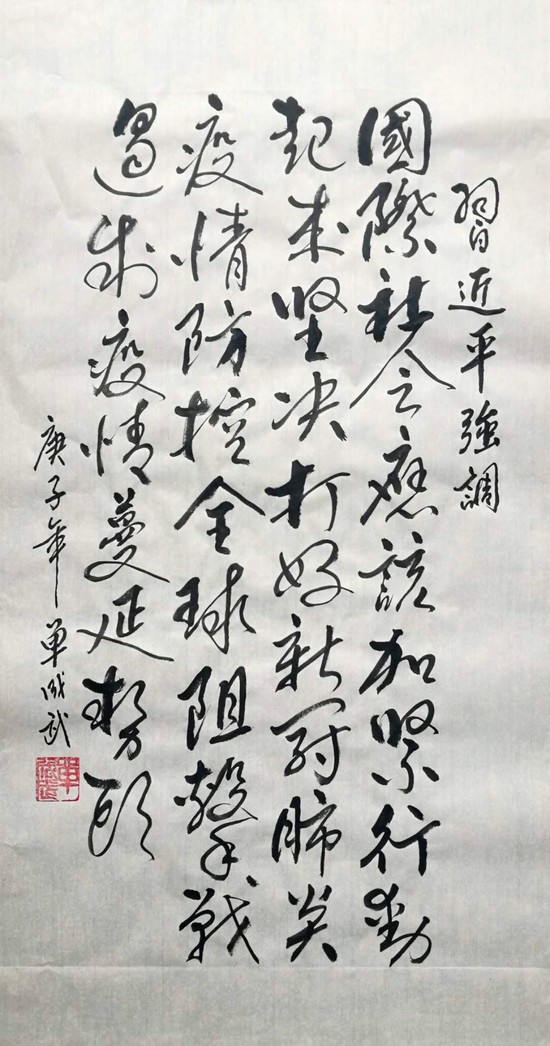 習近平強調
國際社会應該加緊行動
起来坚决打好新冠肺炎
疫情防控全球阻擊战
遏制疫情蔓延势頭
庚子年 单成武